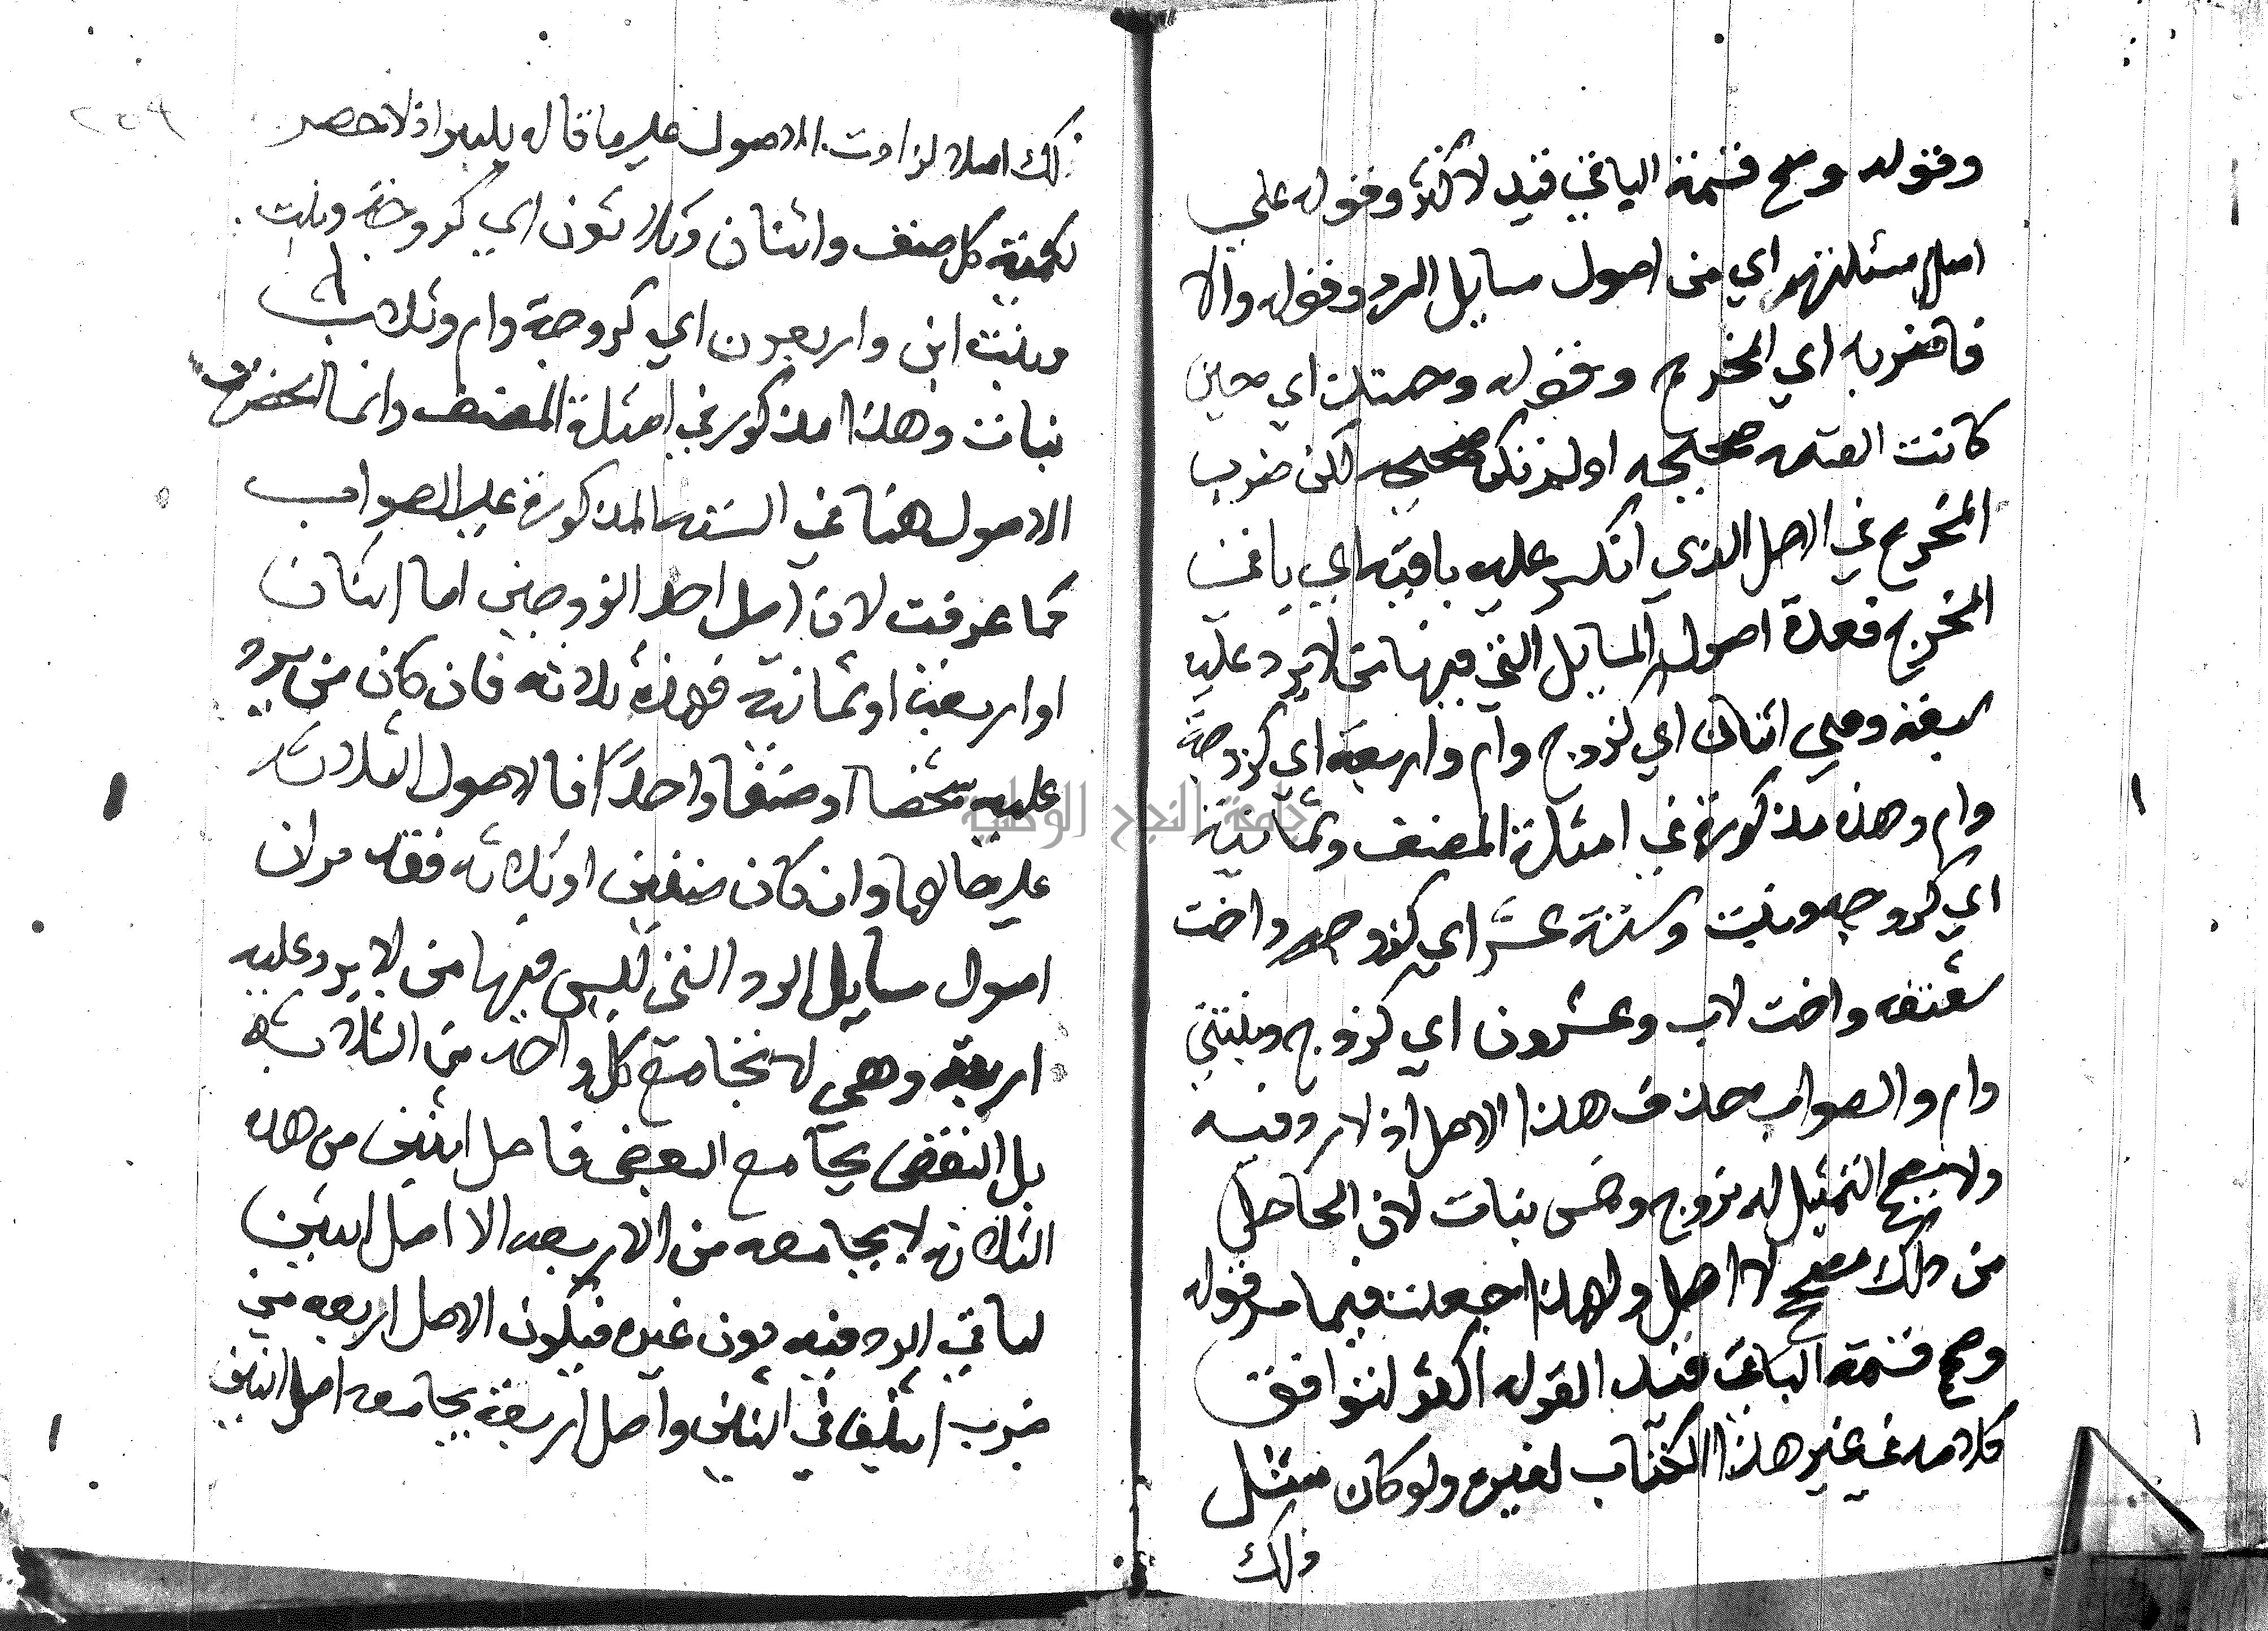 وقوله وصح قسمة الباقي قيد لاكثر وقوله علي
اصل مسئلتهم اي من اصول مسايل الرد وقوله والا
فاضربه اي المخرج وقوله وحيتك اي حين
كانت القسمه صحيحه اولم تكن صحيحه لكن ضرب
المخرج في الاصل الذي انكسر عليه باقيه اي باقي
المخرج فعدة اصول المسايل التي فيها من لا يرد عليه
سبعة وهي اثنان اي كزوج وام واربعة اي كزوجة
وام وهذه مذكورة في امثلة المصنف وثمانية
اي كزوجه وبنت وستة عشر اي كزوجه واخت
شقيقه واخت لاب وعشرون اي كزوج وبنتين
وام والصواب حذف هذا الاصل اذ لا رد فيه
ولا يصح التمثيل له بزوج وخمس بنات لان الحاصل
من ذلك مصحح لا اصل ولهذا جعلت فيما مر قوله
وصح قسمة الباقي قيد القوله اكثر لتوافق
كلامه في غير هذا الكتاب لغيره ولو كان مثل
ذلك
ذلك اصلا لزادت الاصول علي ما قاله بكثير اذ لا حصر
لكمية كل صنف واثنان وثلاثون اي كزوجة وبنت
وبنت ابن واربعون اي كزوجة وام وثلاث
بنات وهذا مذكور في امثلة المصنف وانما انحصرت
الاصول هنا في السته المذكورة علي الصواب
كما عرفت لان اصل احد الزوجين اما اثنان
او اربعة او ثمانية فهذه ثلاثه فان كان من يرد
عليه شخصا او صنفا واحدا فالاصول الثلاث
علي حالها وان كان صنفين او ثلاثه فقد مر ان
اصول مسايل الرد التي ليس فيها من لا يرد عليه
اربعة وهي لا تجامع كل واحد من الثلاثة
بل البعض يجامع البعض فاصل اثنين من هذه
الثلاثه لا يجامعه من الاربعه الا اصل اثنين
لباقي الرد فيه دون غيره فيكون الاصل اربعه من
ضرب اثنين في اثنين واصل اربعة يجامعه اصل اثنين
٢٥٩
جامعة النجاح الوطنية